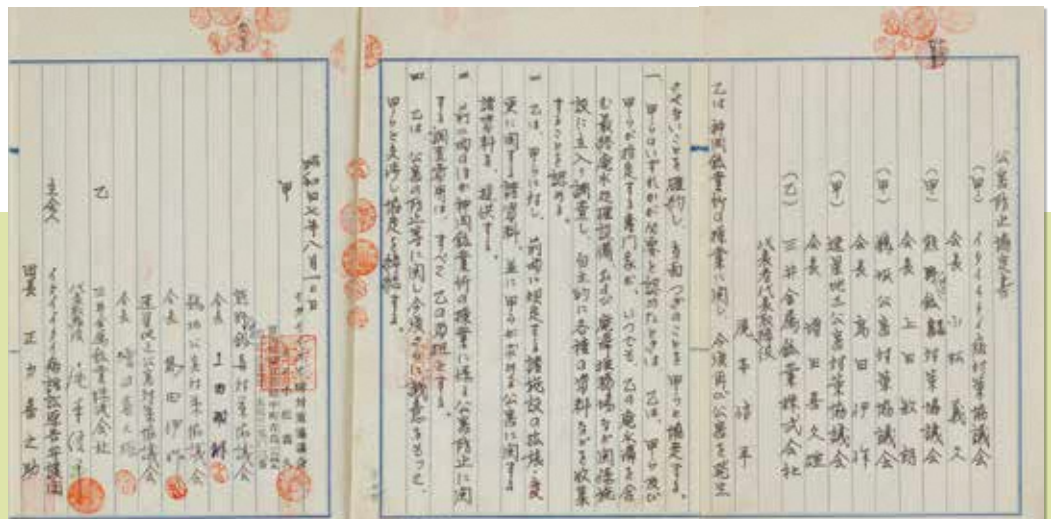 公害防止協定書
(甲) イタイイタイ病対策協議会
会長 小松義久
(甲) 熊野鉱害対策協議会
会長 上田敏朗
(甲) 鵜坂公害対策協議会
会長 高田伊作
(甲) 速星地区公害対策協議会
会長 増田喜久雄
(乙) 三井金属鉱業株式会社
代表者代表取締役
尾本信平
乙は神岡鉱業所の操業に関し、今後再び公害を発生
させないことを確約し、当面つぎのことを甲らと協定する。
一 甲らのいずれかが必要と認めたときは、乙は、甲ら及び
甲らが指定する専門家が、いつでも、乙の廃水溝を含
む最終廃水処理設備および廃滓堆積場など関係施
設に立入り調査し、自主的に各種の資料などを収集
することを認める。
二 乙は、甲らに対し、前項に規定する諸施設の拡張・変
更に関する諸資料、並に甲らが求める公害に関する
諸資料を、提供する。
三 前二項のほか神岡鉱業所の操業に係る公害防止に関
する調査費用は、すべて乙の負担とする。
四 乙は、公害の防止等に関し今後さらに誠意をもって、
甲らと交渉し協定を締結する。
昭和四七年八月一〇日
甲 イタイイタイ病対策協議会
会長 小松義久
熊野鉱害対策協議会
会長 上田敏朗
鵜坂公害対策協議会
会長 高田伊作
速星地区公害対策協議会
会長 増田喜久雄
乙 三井金属鉱業株式会社
代表取締役 尾本信平
立会人 イタイイタイ病訴訟原告弁護団
団長 正力喜之助